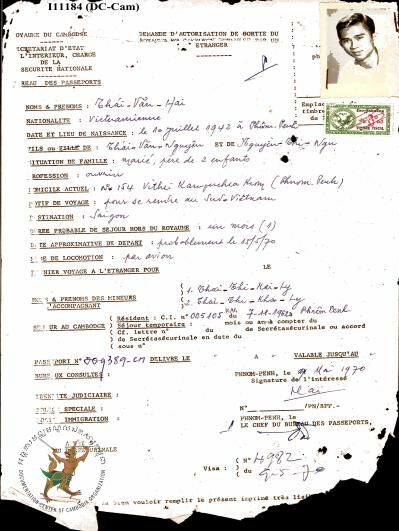 I11184 (DC-Cam)
ROYAUME DU CAMBODGE
DEMANDE D'AUTORISATION DE SORTIE DU
ETRANGER
SECRETARIAT D'ETAT
L'INTERIEUR, CHARGE
DE LA
SECURITE NATIONALE
BUREAU DES PASSEPORTS
NOMS & PRENOMS : Thái-Văn-Hai
NATIONALITE : Vietnamienne
DATE ET LIEU DE NAISSANCE : le 10 juillet 1942 à Phnom-Penh
FILS ou FILLE DE : Thái-Văn-Nguyên ET DE Nguyên-Thi-Ngu
SITUATION DE FAMILLE : marié, père de 2 enfants
PROFESSION : ouvrier
DOMICILE ACTUEL : No 154 Vithei Kampuchea Krom (Phnom Penh)
MOTIF DE VOYAGE : pour se rendre au Sud-Vietnam
DESTINATION : Saigon
DUREE PROBABLE DE SEJOUR HORS DU ROYAUME : un mois (1)
DATE APPROXIMATIVE DE DEPART : probablement le 15/5/70
MODE DE LOCOMOTION : par avion
DERNIER VOYAGE A L'ETRANGER POUR LE
NOMS & PRENOMS DES MINEURS
L'ACCOMPAGNANT
1. Thai-Thi-Mai-Ly
2. Thai-Thi-Kha-Ly
( Résident : C.I. n° 005105 du 7-11-1962 Phnom Penh
SEJOUR AU CAMBODGE ) Séjour temporaire : mois ou en à compter du
( Cf. lettre n° du de Secrétasérie ou accord
) de Secrétasérie en date du
( sous n°
PASSEPORT N° 309389-cm DELIVRE LE A VALABLE JUSQU'AU
BUREAUX CONSULTES :
PHNOM-PENH, le 9 Mai 1970
Signature de l'intéressé
Hai
IDENTITE JUDICIAIRE :
N° /PN/BPP.-
POLICE SPECIALE :
PHNOM-PENH, le
POLICE IMMIGRATION :
LE CHEF DU BUREAU DES PASSEPORTS,
Visa : ( N° 4982
( du 9-5-70
bien vouloir remplir le présent imprimé très
DOCUMENTATION CENTER OF CAMBODIA